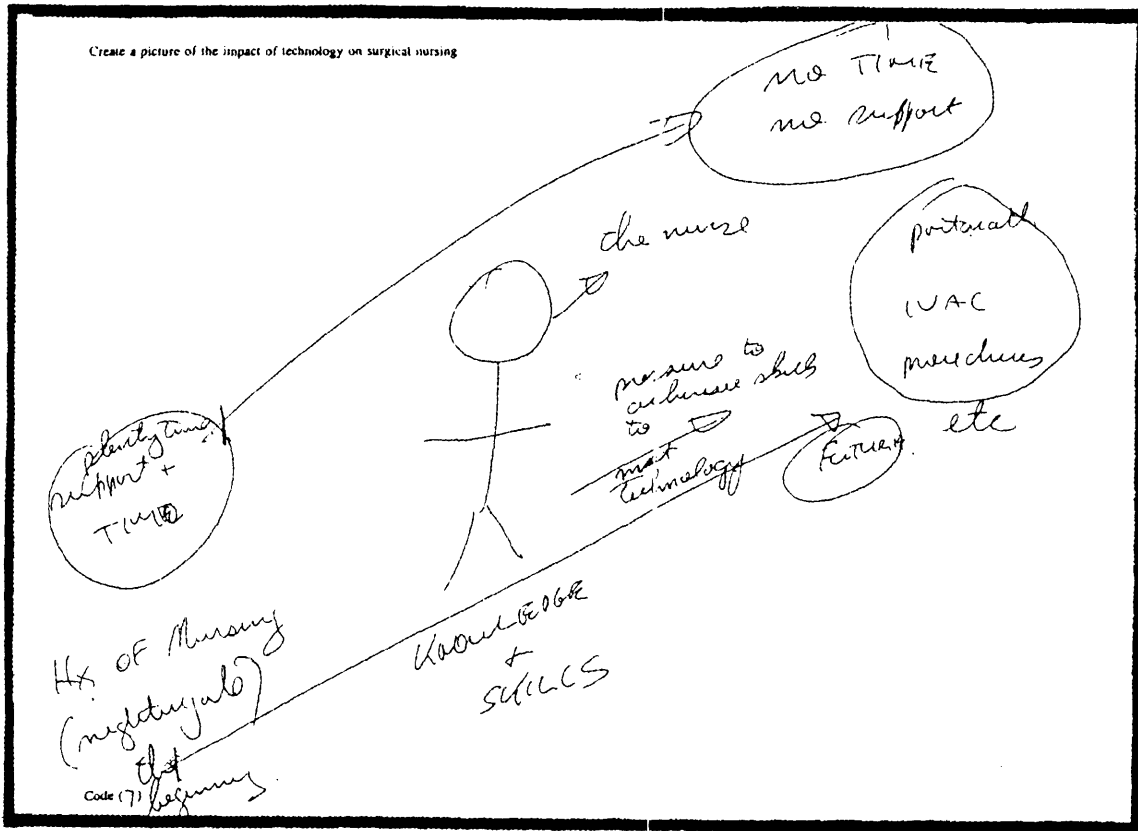 Create a picture of the impact of technology on surgical nursing
no TIME
no support
the nurse
portacath
IVAC
etc
pressure to
enhance skills
to
meet
technology
Future
plenty time
support +
TIME
Hx OF Nursing
(nightingale)
the
beginning
KNOWLEDGE
+
SKILLS
Code (7)